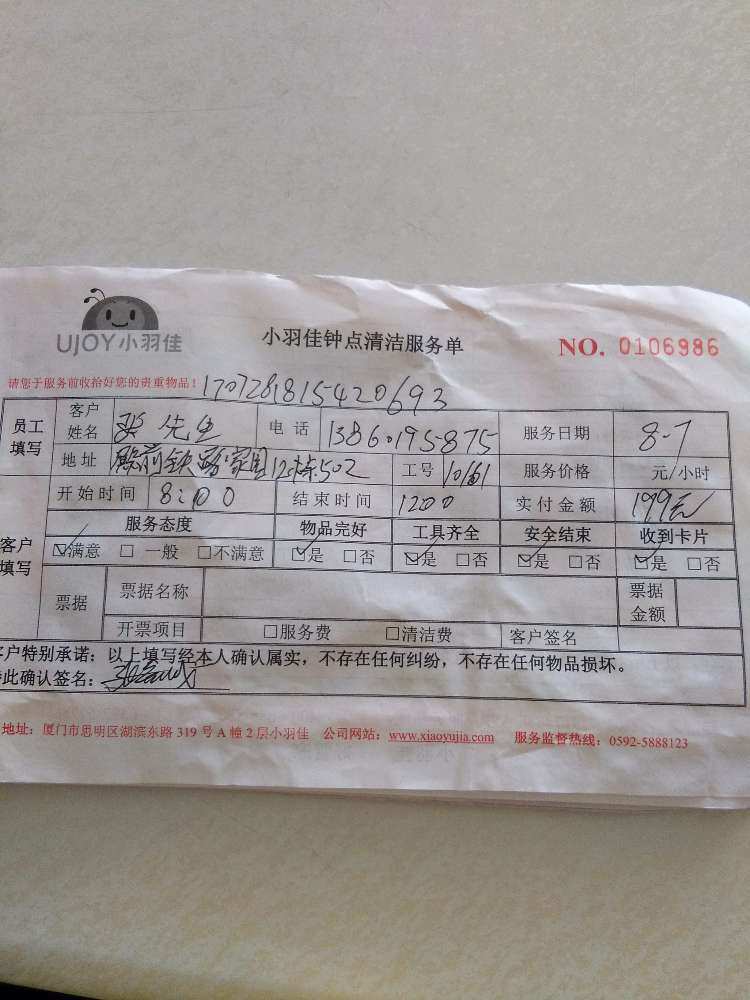 UJOY小羽佳
小羽佳钟点清洁服务单
NO. 0106986
请您于服务前收拾好您的贵重物品！170728181542 0693
员工填写 客户姓名 张先生 电话 13860195875 服务日期 8-7
地址 殿前 家园12栋502 工号 10161 服务价格 元/小时
开始时间 8:00 结束时间 1200 实付金额 199元
客户填写 服务态度 物品完好 工具齐全 安全结束 收到卡片
☑满意 □一般 □不满意 ☑是 □否 ☑是 □否 ☑是 □否 ☑是 □否
票据 票据名称 票据金额
开票项目 □服务费 □清洁费 客户签名
客户特别承诺：以上填写经本人确认属实，不存在任何纠纷，不存在任何物品损坏。
此确认签名：
地址：厦门市思明区湖滨东路 319 号 A 幢 2 层小羽佳 公司网站：www.xiaoyujia.com 服务监督热线：0592-5888123